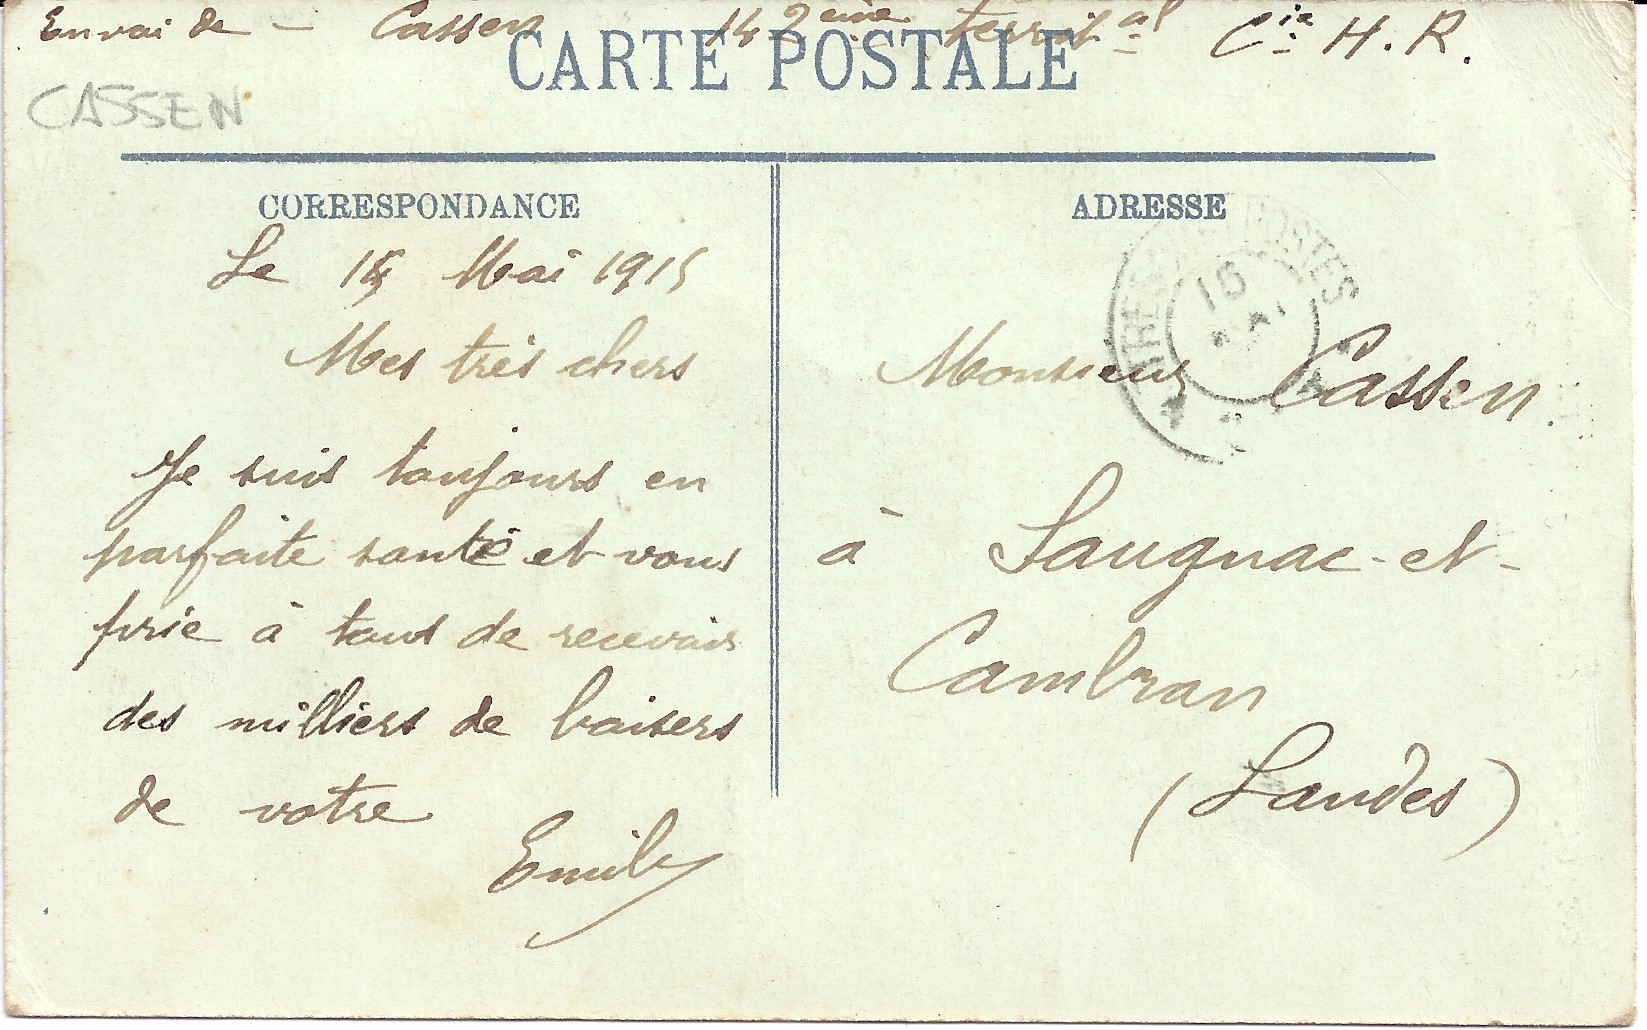 Envoi de - Cassen 142ème territal Cie H. R.
CARTE POSTALE
CASSEN
CORRESPONDANCE
Le 15 Mai 1915
Mes très chers
Je suis toujours en
parfaite santé et vous
prie à tous de recevoir
des milliers de baisers
de votre
Emile
ADRESSE
16
Monsieur Cassen
à Saugnac-et-
Cambran
(Landes)